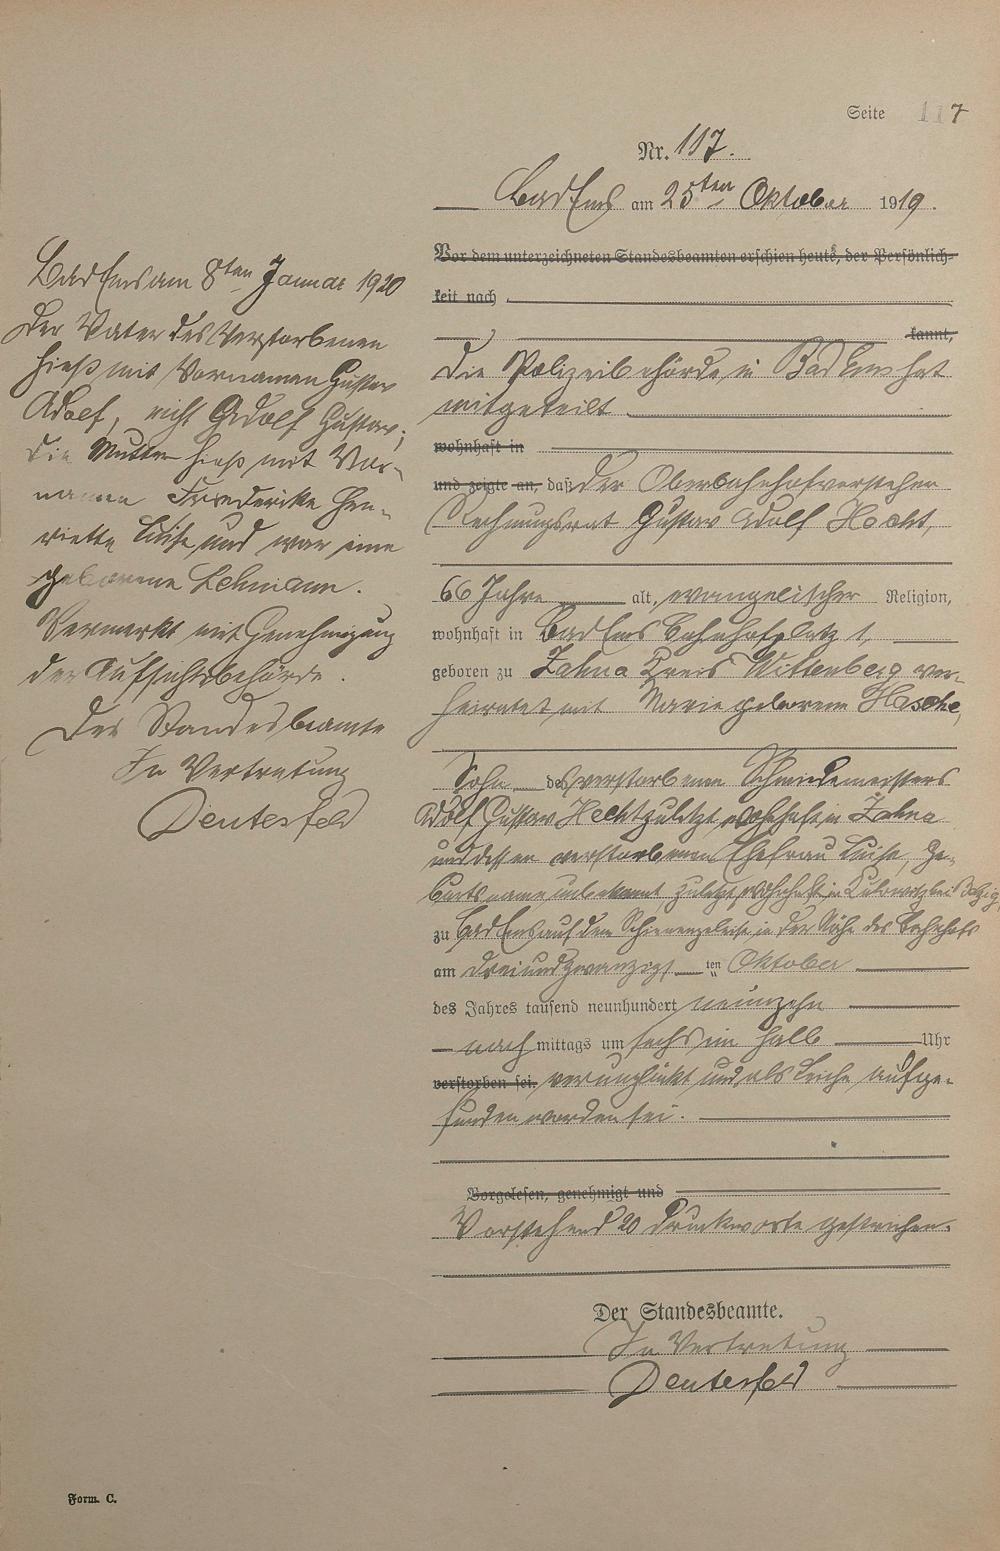 Seite 117
Nr. 117.
Bad Ems am 25ten Oktober 1919.
Vor dem unterzeichneten Standesbeamten erschien heute, der Persönlich-
keit nach
kannt,
Die Polizeibehörde in Bad Ems hat
mitgeteilt
wohnhaft in
und zeigte an, daß der Oberbahnhofvorsteher
Rechnungsrat Gustav Adolf Hecht,
66 Jahre alt, evangelischer Religion,
wohnhaft in Bad Ems Bahnhofplatz 1,
geboren zu Zahna Kreis Wittenberg ver-
heiratet mit Marie geborene
Sohn des verstorbenen Schmiedemeisters
Adolf Gustav Hecht zuletzt wohnhaft in Zahna
und dessen verstorbenen Ehefrau Luise, Ge-
burtsname unbekannt, zuletzt wohnhaft in bei
zu Bad Ems auf dem Schienengeleise in der Nähe des Bahnhofs
am dreiundzwanzigsten Oktober
des Jahres tausend neunhundert neunzehn
nachmittags um sechs ein halb Uhr
verstorben sei. verunglückt und als Leiche aufge-
funden worden sei.
Vorgelesen, genehmigt und
Vorstehend 20 Druckworte gestrichen.
Der Standesbeamte.
In Vertretung
Deutesfeld
Bad Ems am 8ten Januar 1920
Der Vater des Verstorbenen
hieß mit Vornamen Gustav
Adolf, nicht Adolf Gustav;
die Mutter hieß mit Vor-
namen Friederike Hen-
riette Luise und war eine
geborene Lehmann.
Vermerkt mit Genehmigung
der Aufsichtsbehörde.
Der Standesbeamte
In Vertretung
Deutesfeld
Form. C.